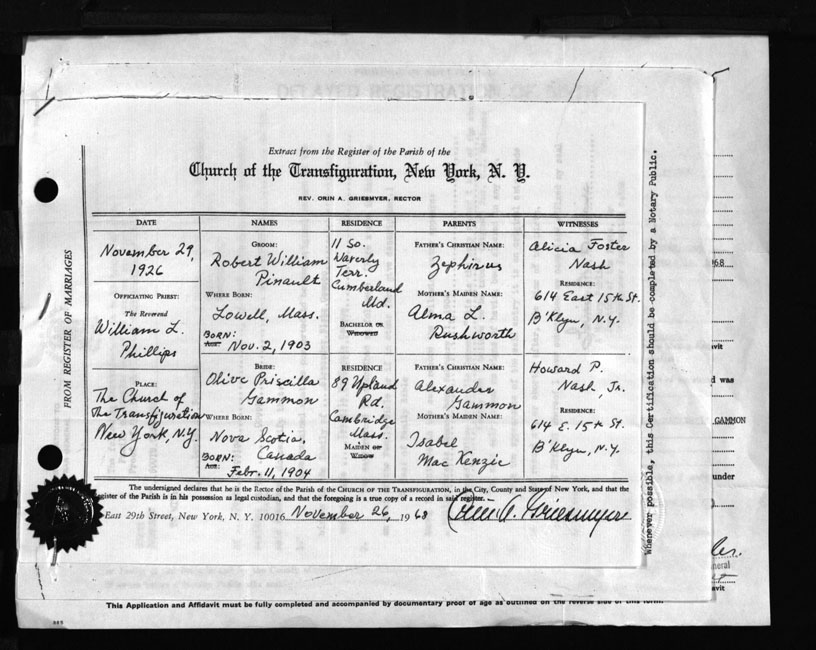 DELAYED REGISTRATION OF BIRTH
Extract from the Register of the Parish of the
Church of the Transfiguration, New York, N. Y.
REV. ORIN A. GRIESMYER, RECTOR
FROM REGISTER OF MARRIAGES
DATE
NAMES
RESIDENCE
PARENTS
WITNESSES
November 29,
1926
GROOM:
Robert William
Pinault
11 So.
Waverly
Terr.
Cumberland
Md.
FATHER'S CHRISTIAN NAME:
Zephirus
Alicia Foster
Nash
OFFICIATING PRIEST:
The Reverend
William L.
Phillips
WHERE BORN:
Lowell, Mass.
BORN:
AGE:
Nov. 2, 1903
BACHELOR OR
WIDOWER
MOTHER'S MAIDEN NAME:
Alma L.
Rushworth
RESIDENCE:
614 East 15th St.
B'klyn, N.Y.
PLACE:
The Church of
The Transfiguration
New York, N.Y.
BRIDE:
Olive Priscilla
Gammon
RESIDENCE
89 Upland
Rd.
Cambridge
Mass.
FATHER'S CHRISTIAN NAME:
Alexander
Gammon
Howard P.
Nash, Jr.
WHERE BORN:
Nova Scotia,
Canada
BORN:
AGE:
Febr. 11, 1904
MAIDEN OR
WIDOW
MOTHER'S MAIDEN NAME:
Isabel
MacKenzie
RESIDENCE:
614 E. 15th St.
B'klyn, N.Y.
The undersigned declares that he is the Rector of the Parish of the CHURCH OF THE TRANSFIGURATION, in the City, County and State of New York, and that the
Register of the Parish is in his possession as legal custodian, and that the foregoing is a true copy of a record in said register.
East 29th Street, New York, N. Y. 10016 November 26, 1968 Orin A. Griesmyer
whenever possible, this Certification should be completed by a Notary Public.
968
avit
d was
GAMMON
under
neral
avit
This Application and Affidavit must be fully completed and accompanied by documentary proof of age as outlined on the reverse side of this form.